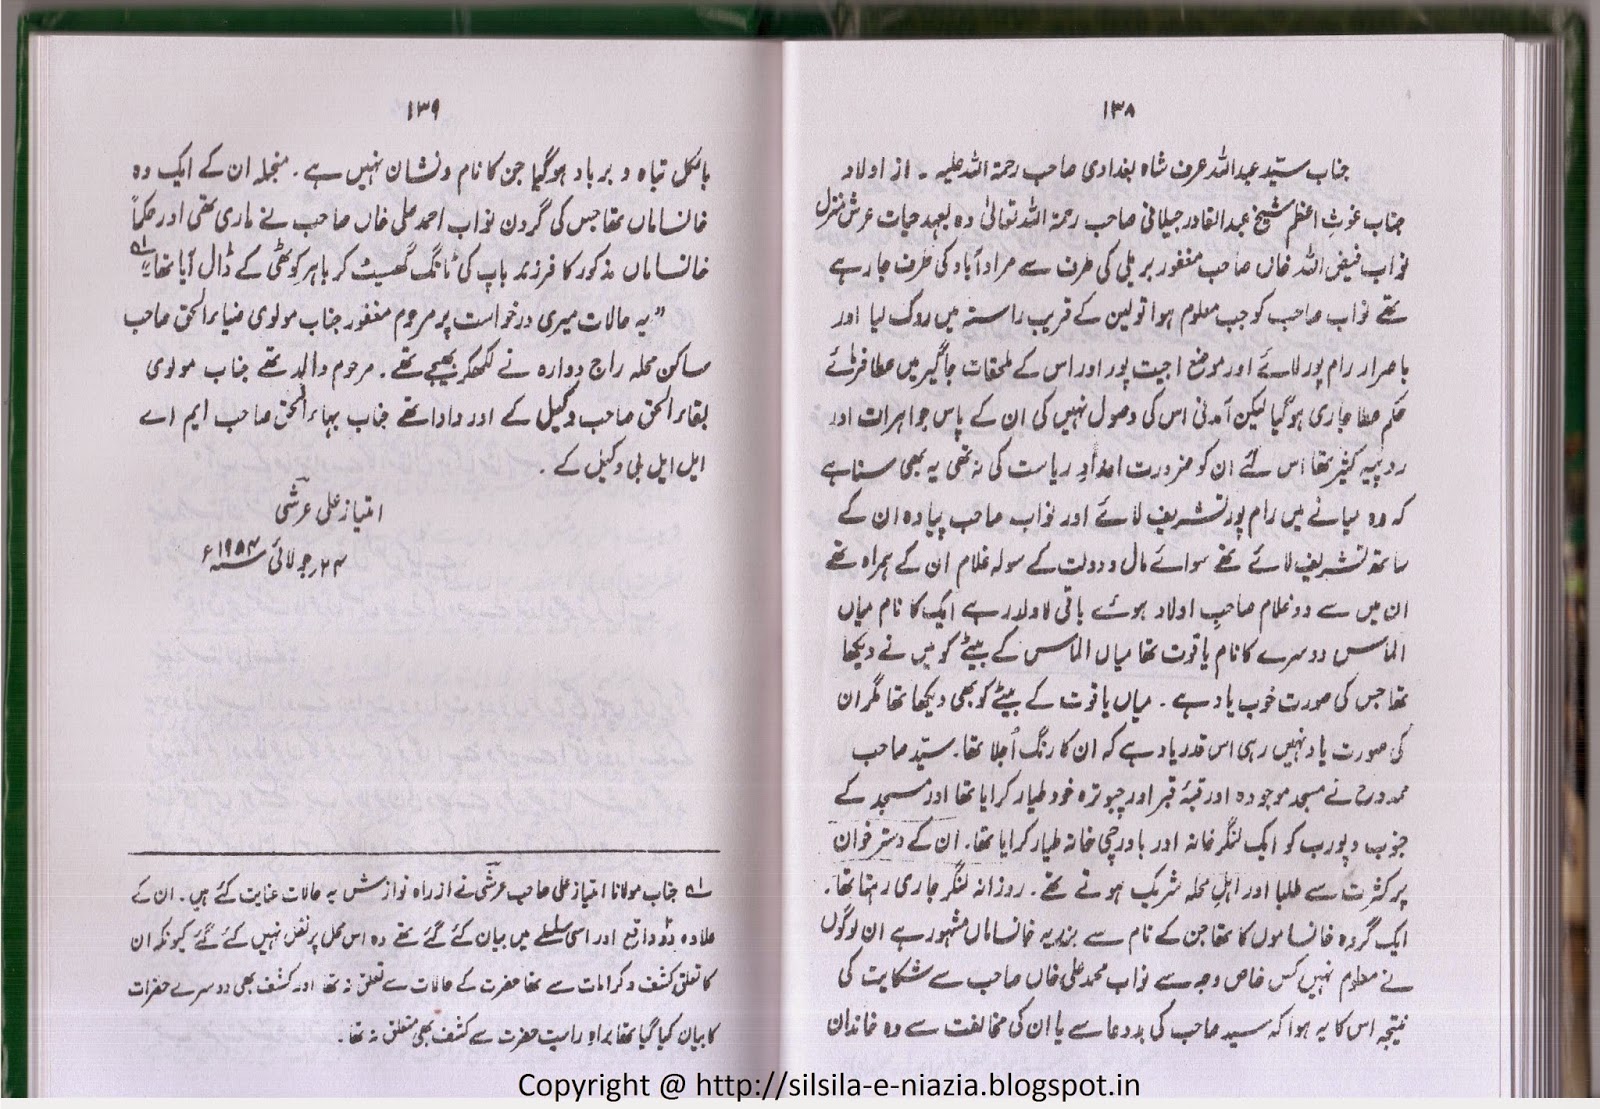 ۱۳۸
جناب سیّد عبداللہ عرف شاہ بغدادی صاحب رحمۃ اللہ علیہ ۔ از اولاد
جناب غوثِ اعظم شیخ عبدالقادر جیلانی صاحب رحمۃ اللہ تعالیٰ وہ بعہد حیات عرش منزل
نواب فیض اللہ خاں صاحب مغفور بریلی کی طرف سے مرادآباد کی طرف جارہے
تھے نواب صاحب کو جب معلوم ہوا تو لین کے قریب راستہ میں روک لیا اور
باصرار رام پور لائے اور موضع اجیت پور اور اس کے ملحقات جاگیر میں عطا فرمائے
حکم عطا جاری ہوگیا لیکن آمدنی اس کی وصول نہیں کی ان کے پاس جواہرات اور
روپیہ کثیر تھا اس لئے ان کو ضرورت امدادِ ریاست کی نہ تھی یہ بھی سنا ہے
کہ وہ میانے میں رام پور تشریف لائے اور نواب صاحب پیادہ ان کے
ساتھ تشریف لائے تھے سوائے مال و دولت کے سولہ غلام ان کے ہمراہ تھے
ان میں سے دو غلام صاحبِ اولاد ہوئے باقی لاولد رہے ایک کا نام میاں
الماس دوسرے کا نام یاقوت تھا میاں الماس کے بیٹے کو میں نے دیکھا
تھا جس کی صورت خوب یاد ہے ۔ میاں یاقوت کے بیٹے کو بھی دیکھا تھا مگر ان
کی صورت یاد نہیں رہی اس قدر یاد ہے کہ ان کا رنگ اُجلا تھا۔ سیّد صاحب
ممدوح نے مسجد موجودہ اور قبۂ قبر اور چبوترہ خود طیار کرایا تھا اور مسجد کے
جنوب و پورب کو ایک لنگر خانہ اور باورچی خانہ طیار کرایا تھا۔ ان کے دسترخوان
پر کثرت سے طلبا اور اہلِ محلہ شریک ہوتے تھے ۔ روزانہ لنگر جاری رہتا تھا۔
ایک گروہ خانساموں کا تھا جن کے نام سے بزریہ خانساماں مشہور ہے ان لوگوں
نے معلوم نہیں کس خاص وجہ سے نواب محمد علی خاں صاحب سے شکایت کی
نتیجہ اس کا یہ ہوا کہ سید صاحب کی بددعا سے یا ان کی مخالفت سے وہ خاندان
۱۳۹
بالکل تباہ و برباد ہوگیا جن کا نام و نشان نہیں ہے ۔ منجملہ ان کے ایک وہ
خانساماں تھا جس کی گردن نواب احمد علی خاں صاحب نے ماری تھی اور حکماً
خانساماں مذکور کا فرزند باپ کی ٹانگ گھسیٹ کر باہر کوٹھی کے ڈال آیا تھا۔" ؎۱
"یہ حالات میری درخواست پر مرحوم مغفور جناب مولوی ضیاء الحق صاحب
ساکن محلہ راج دوارہ نے لکھ کر بھیجے تھے ۔ مرحوم والد تھے جناب مولوی
بقاء الحق صاحب وکیل کے اور دادا تھے جناب بہاء الحق صاحب ایم اے
ایل ایل بی وکیل کے ۔
امتیاز علی عرشی
۲۳ جولائی ۱۹۵۳ء
؎۱ جناب مولانا امتیاز علی صاحب عرشی نے از راہ نوازش یہ حالات عنایت کئے ہیں ۔ ان کے
علاوہ دو واقع اور اسی سلسلے میں بیان کئے گئے تھے وہ اس محل پر نقل نہیں کئے گئے کیونکہ ان
کا تعلق کشف و کرامات سے تھا حضرت کے حالات سے تعلق نہ تھا اور کشف بھی دوسرے حضرات
کا بیان کیا گیا تھا براہِ راست حضرت سے کشف بھی متعلق نہ تھا ۔
Copyright @ http://silsila-e-niazia.blogspot.in